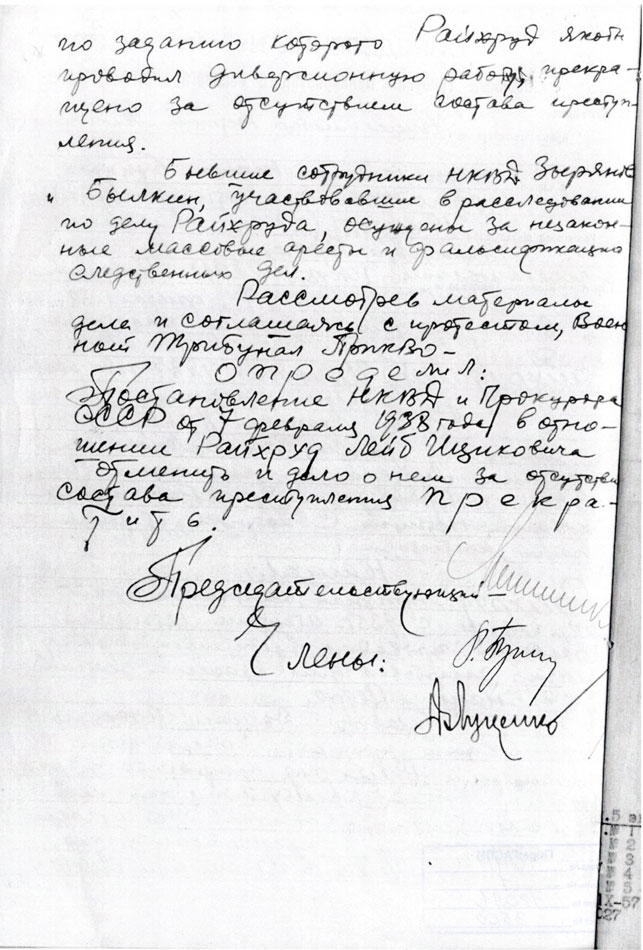 по заданию которого Райхруд якобы
проводил диверсионную работу, прекра-
щено за отсутствием состава преступ-
ления.
Бывшие сотрудники НКВД Зырянов
и Былкин, участвовавшие в расследовании
по делу Райхруда, осуждены за незакон-
ные массовые аресты и фальсификацию
следственных дел.
Рассмотрев материалы
дела и соглашаясь с протестом, Воен
ный Трибунал ПриКВО –
Определил:
Постановление НКВД и Прокурора
СССР от 7 февраля 1938 года в отно-
шении Райхруд Лейб Ициковича
отменить и дело о нем за отсутствием
состава преступления прекра-
тить.
Председательствующий –
Члены:
А Луценко
.5 э
№ 1
№ 2
№ 3
№ 4
№ 5
IX-57
С27